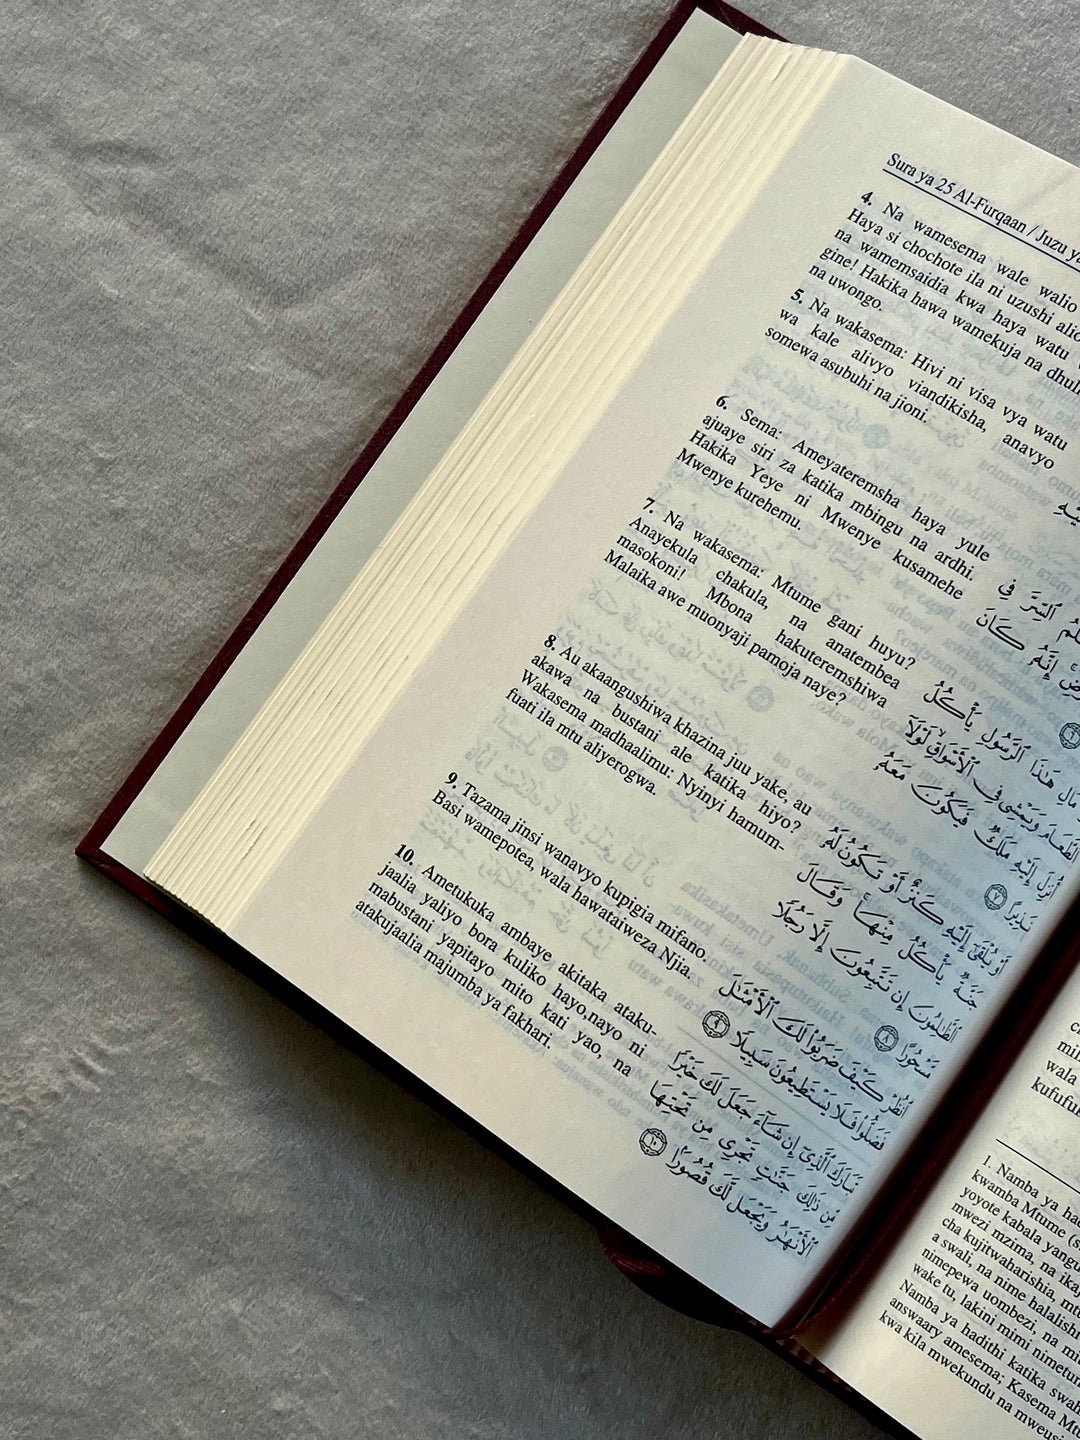 Sura ya 25 Al-Furqaan / Juzu ya
4. Na wamesema wale walio
Haya si chochote ila ni uzushi
na wamemsaidia kwa haya watu
gine! Hakika hawa wamekuja na
na uwongo.
5. Na wakasema: Hivi ni visa vya watu
wa kale alivyo viandikisha, anavyo
somewa asubuhi na jioni.
6. Sema: Ameyateremsha haya yule
ajuaye siri za katika mbingu na ardhi.
Hakika Yeye ni Mwenye kusamehe
Mwenye kurehemu.
7. Na wakasema: Mtume gani huyu?
Anayekula chakula, na anatembea
masokoni! Mbona hakuteremshiwa
Malaika awe muonyaji pamoja naye?
8. Au akaangushiwa khazina juu yake, au
akawa na bustani ale katika hiyo?
Wakasema madhaalimu: Nyinyi hamum-
fuati ila mtu aliyerogwa.
9. Tazama jinsi wanavyo kupigia mifano.
Basi wamepotea, wala hawataiweza Njia.
10. Ametukuka ambaye akitaka ataku-
jaalia yaliyo bora kuliko hayo,nayo ni
mabustani yapitayo mito kati yao, na
atakujaalia majumba ya fakhari.
ٱلسِّرَّ فِي
إِنَّهُۥ كَانَ
مَالِ هَـٰذَا ٱلرَّسُولِ يَأۡكُلُ
ٱلطَّعَامَ وَيَمۡشِي فِي ٱلۡأَسۡوَاقِ لَوۡلَآ
أُنزِلَ إِلَيۡهِ مَلَكٞ فَيَكُونَ مَعَهُۥ
نَذِيرًا ٧
أَوۡ يُلۡقَىٰٓ إِلَيۡهِ كَنزٌ أَوۡ تَكُونُ لَهُۥ
جَنَّةٞ يَأۡكُلُ مِنۡهَاۚ وَقَالَ
ٱلظَّـٰلِمُونَ إِن تَتَّبِعُونَ إِلَّا رَجُلٗا
مَّسۡحُورًا ٨
ٱنظُرۡ كَيۡفَ ضَرَبُواْ لَكَ ٱلۡأَمۡثَـٰلَ
فَضَلُّواْ فَلَا يَسۡتَطِيعُونَ سَبِيلٗا ٩
تَبَارَكَ ٱلَّذِيٓ إِن شَآءَ جَعَلَ لَكَ خَيۡرٗا
مِّن ذَٰلِكَ جَنَّـٰتٖ تَجۡرِي مِن تَحۡتِهَا
ٱلۡأَنۡهَـٰرُ وَيَجۡعَل لَّكَ قُصُورَۢا ١٠
wala
1. Namba ya
kwamba Mtume
yoyote kabala
mwezi mzima, na
cha kujitwaharishia,
a swali, na nime
nimepewa uombezi, na
wake tu, lakini mimi
Namba ya hadithi katika
answaary amesema; Kasema
kwa kila mwekundu na